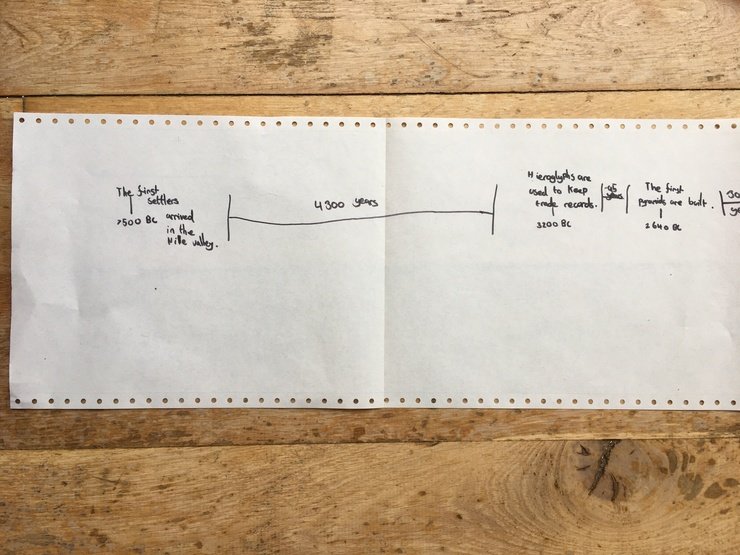 The first
settlers
7500 BC arrived
in the
Nile valley.
4300 years
Hieroglyphs are
used to keep
trade records.
3200 BC
years
The first
Pyramids are built.
2640 BC
30
ye